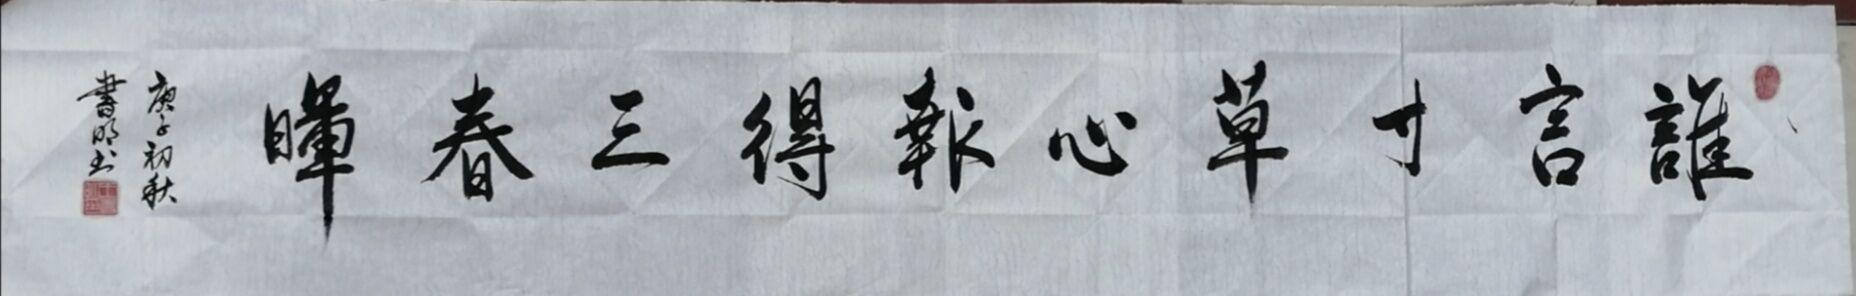 誰言寸草心報得三春暉
庚子初秋
書明书